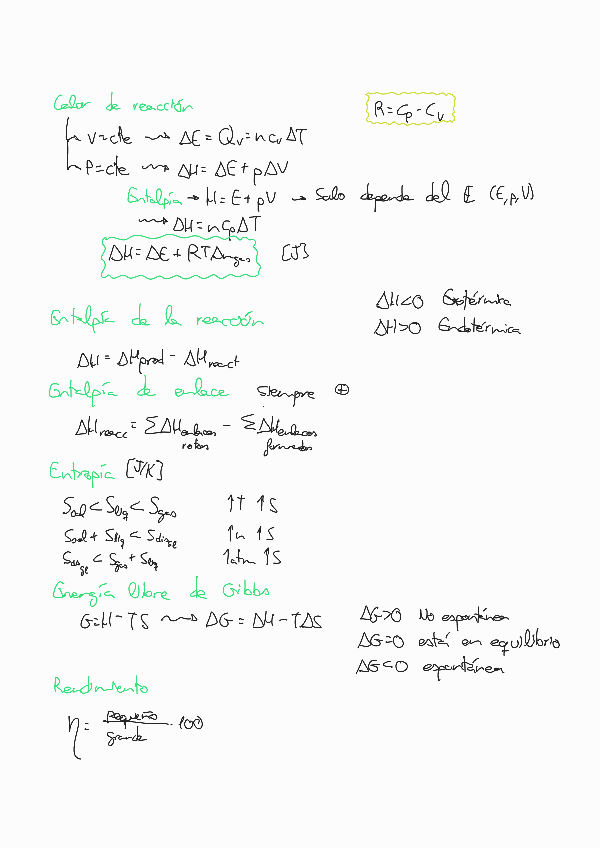 Calor de reacción
R = Cp - Cv
V=cte → ΔE = Qv = n cv ΔT
P=cte → ΔH = ΔE + pΔV
Entalpía → H = E + pV → Solo depende del E (E, p, V)
→ ΔH = n cp ΔT
ΔH = ΔE + RTΔngas [J]
ΔH<0 Exotérmica
Entalpía de la reacción
ΔH>0 Endotérmica
ΔH = ΔHprod - ΔHreact
Entalpía de enlace siempre ⊕
ΔHreacc = ΣΔHenlaces rotos - ΣΔHenlaces formados
Entropía [J/K]
Ssol < Sliq < Sgas ↑T ↑S
Ssol + Sliq < Sdisol ↑n ↑S
Sdis gas < Sgas + Sliq ↑atm ↑S
Energía libre de Gibbs
G=H-TS → ΔG = ΔH - TΔS
ΔG>0 No espontánea
ΔG=0 está en equilibrio
ΔG<0 espontánea
Rendimiento
η = pequeño / grande · 100